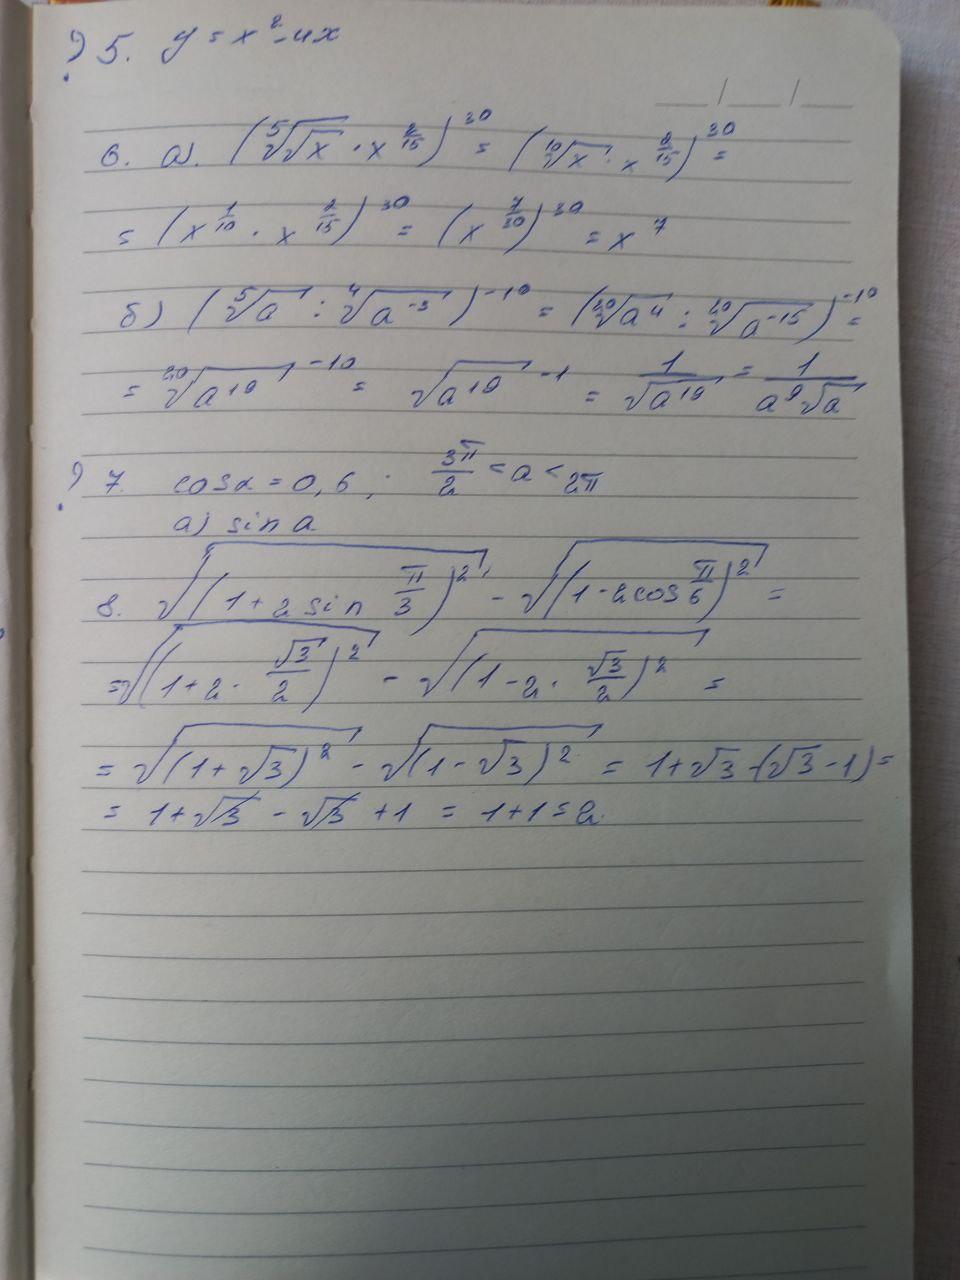 ? 5. y = x² - 4x
__ / __ / __
6. а). (⁵√√x · x^(2/15))^30 = (¹⁰√x · x^(2/15))^30 =
= (x^(1/10) · x^(2/15))^30 = (x^(7/30))^30 = x^7
б) (⁵√a : ⁴√a^(-3))^(-10) = (²⁰√a^4 : ²⁰√a^(-15))^(-10) =
= ²⁰√a^19^(-10) = √a^19^(-1) = 1/√a^19 = 1/(a^9√a)
? 7. cosα = 0,6 ; 3π/2 < a < 2π
а) sin a
8. √(1 + 2 sin π/3)² - √(1 - 2cos π/6)² =
= √(1 + 2 · √3/2)² - √(1 - 2 · √3/2)² =
= √(1 + √3)² - √(1 - √3)² = 1 + √3 - (√3 - 1) =
= 1 + √3 - √3 + 1 = 1 + 1 = 2